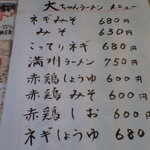 大ちゃんラーメン メニュー
ネギみそ 680円
みそ 630円
こってりネギ 680円
満州ラーメン 750円
赤鶏しょうゆ 600円
赤鶏みそ 600円
赤鶏しお 600円
ネギしょうゆ 680